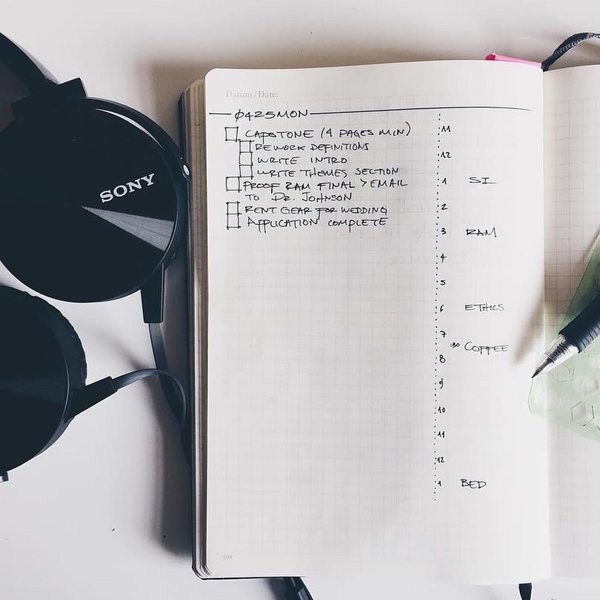 SONY
Datum / Date:
0425MON
CAPSTONE (4 PAGES MIN)
REWORK DEFINITIONS
WRITE INTRO
WRITE THEMES SECTION
PROOF RAM FINAL > EMAIL
TO DR. JOHNSON
RENT GEAR FOR WEDDING
APPLICATION COMPLETE
11
12
1 SI
2
3 RAM
4
5
6 ETHICS
7
:30 COFFEE
8
9
10
11
12
1 BED